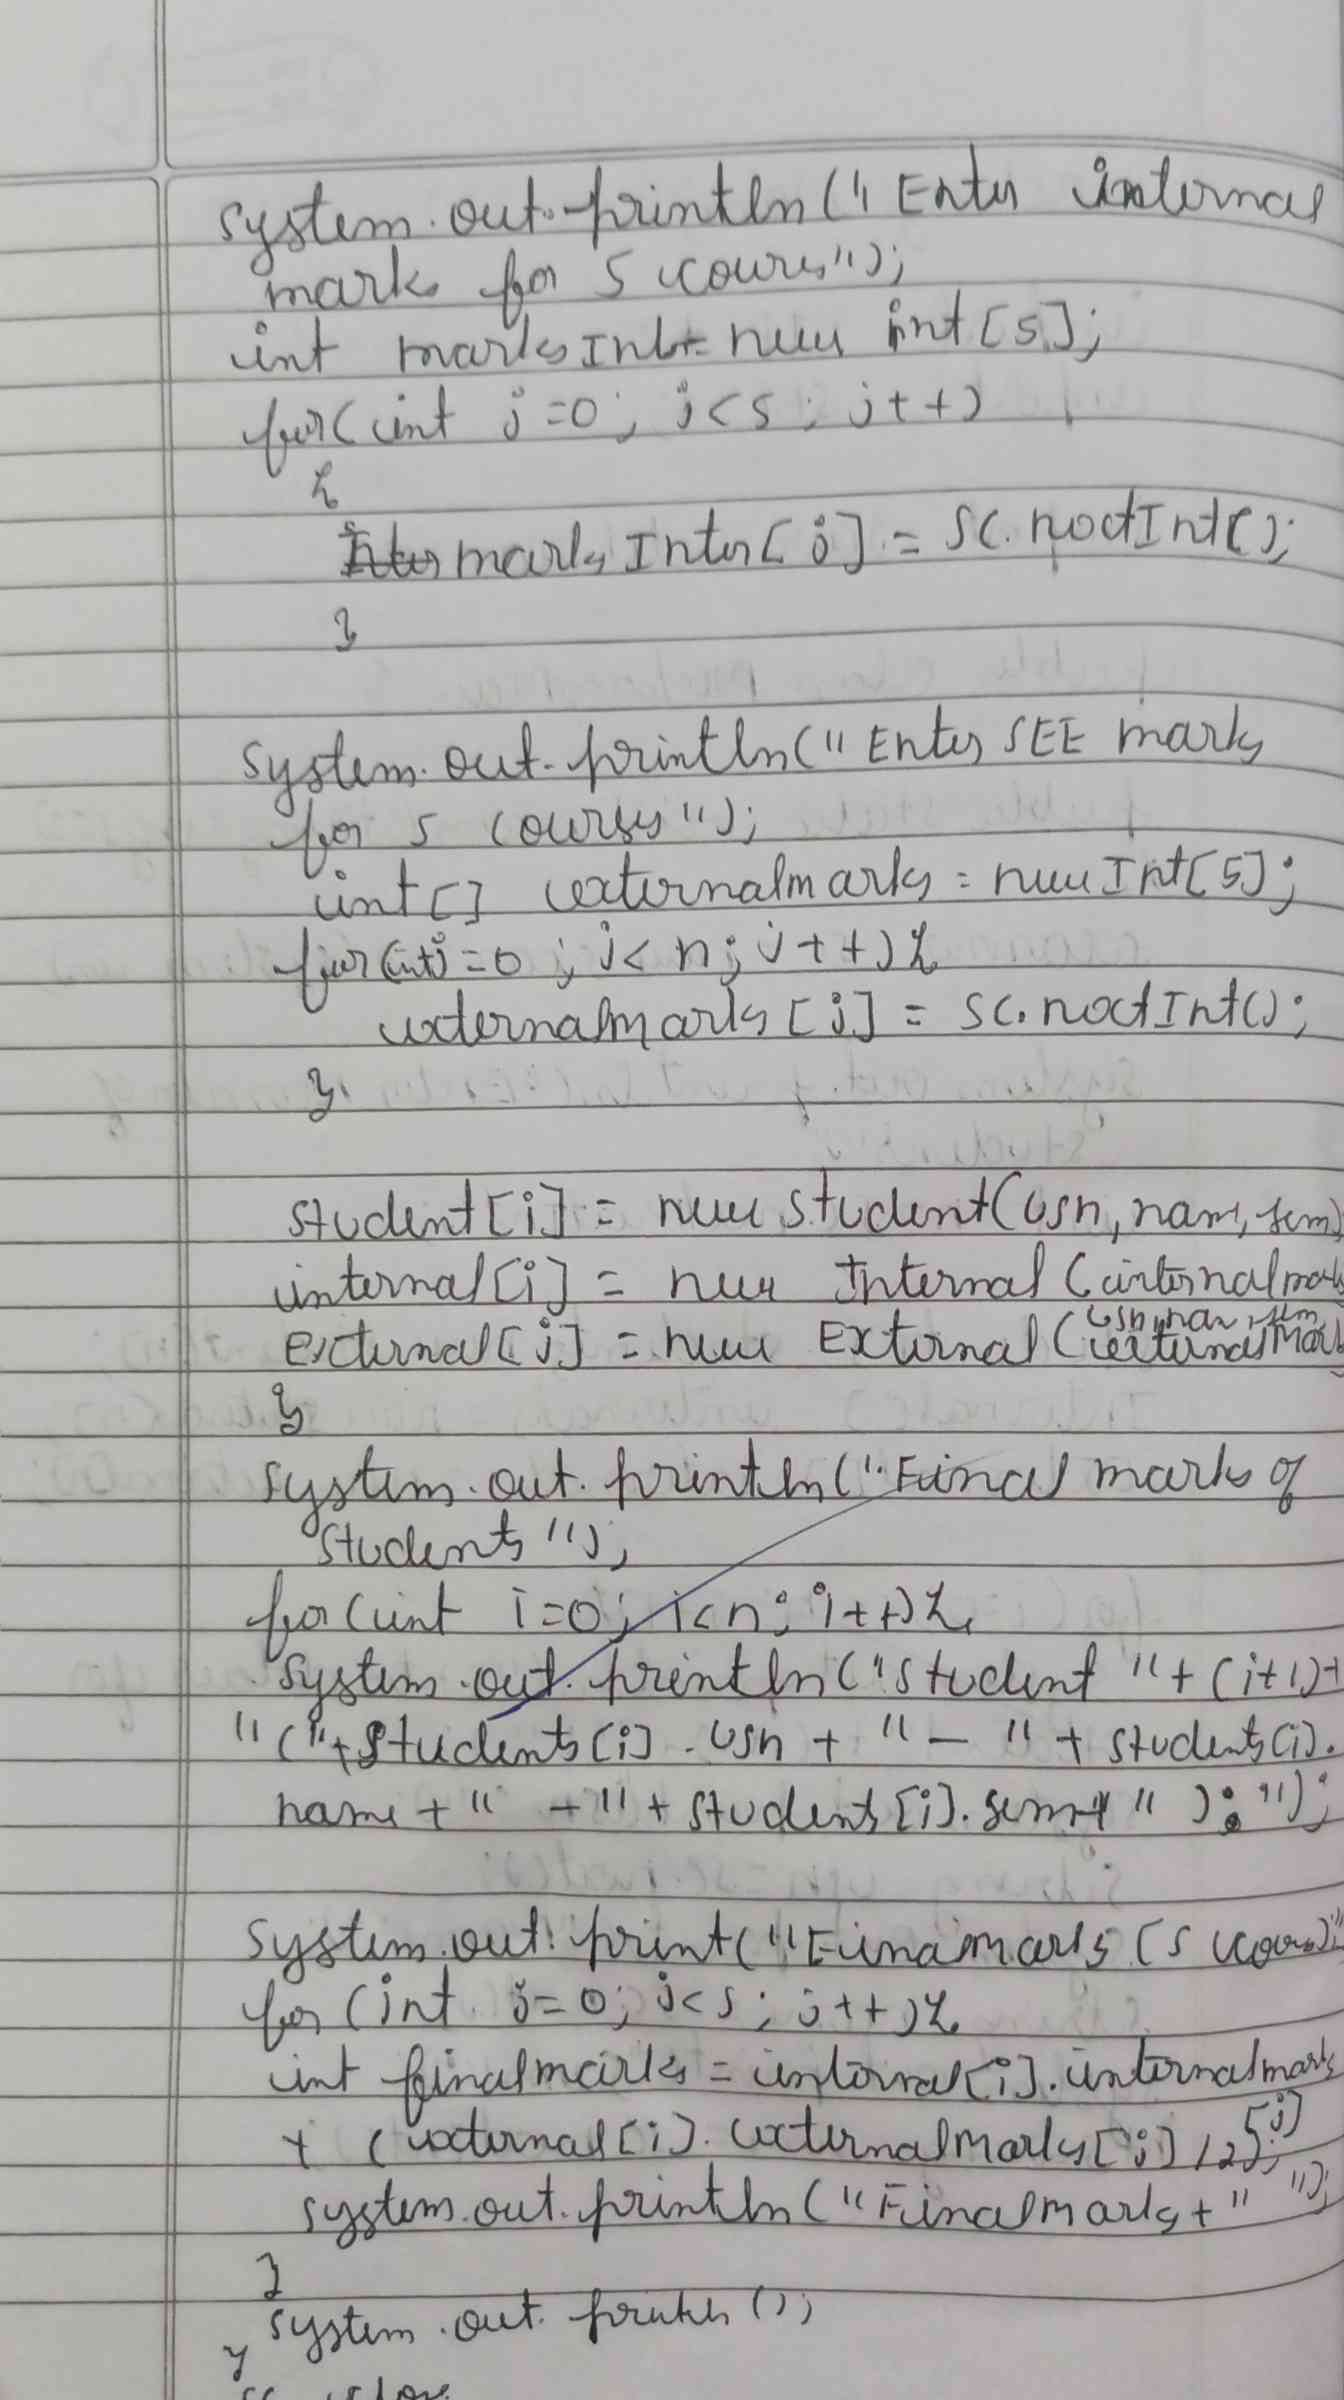 System.out.println("Enter internal
marks for 5 cours");
int marksInt = new int[5];
for(int j=0; j<5; j++)
{
marksInter[j] = sc.nextInt();
}
System.out.println("Enter SEE marks
for 5 courses");
int[] externalmarks = new Int[5];
for(int j=0; j<n; j++){
externalmarks[j] = sc.nextInt();
}
student[i] = new student(usn, name, sem)
internal[i] = new Internal(internalmarks
usn, nam, sem
external[i] = new External(externalMark
}
System.out.println("Final marks of
students");
for(int i=0; i<n; i++){
System.out.println("student "+(i+1)+
"("+students[i].usn + " - " + students[i].
name + " - " + students[i].sem+" ):");
System.out.print("Finamarks (5
for (int j=0; j<5; j++){
int finalmarks = internal[i].internalmarks
[j]
+ (external[i].externalMarks[j]/2);
System.out.println("Finalmarks+" ");
}
System.out.println();
}